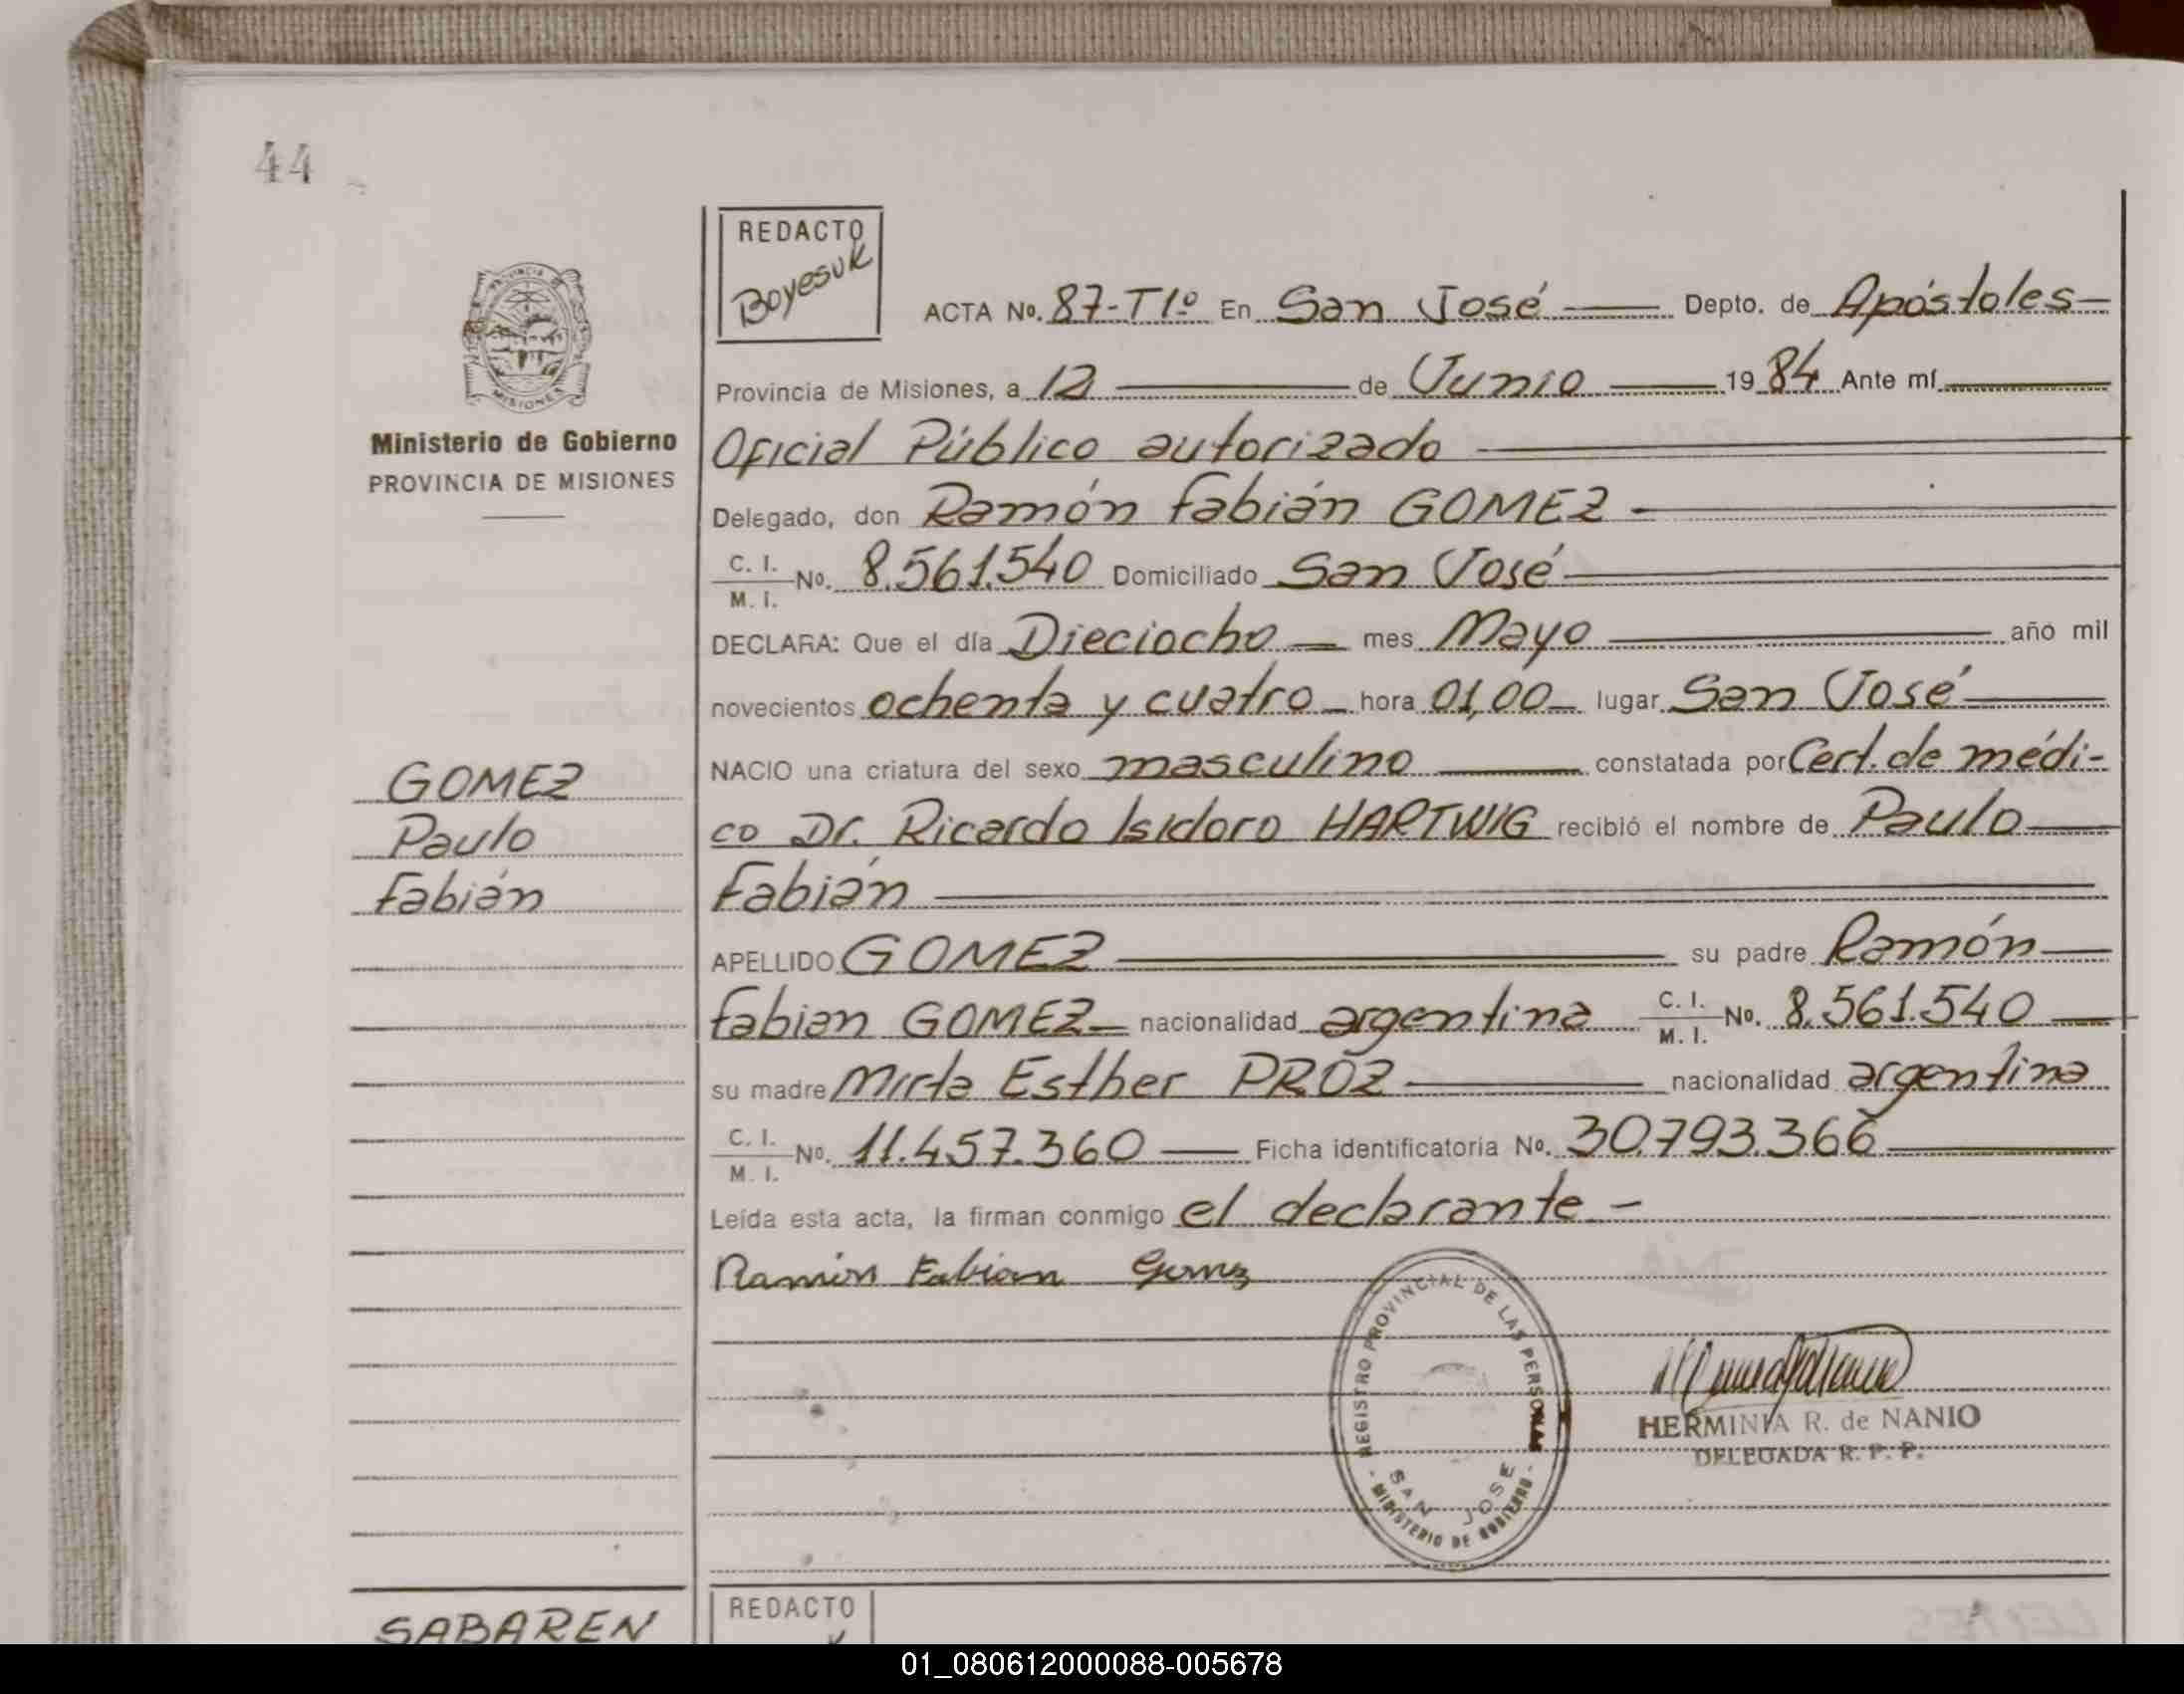 44
REDACTO
Boyesuk
PROVINCIA DE
MISIONES
Ministerio de Gobierno
PROVINCIA DE MISIONES
ACTA No. 87-T1º En San José Depto. de Apóstoles
Provincia de Misiones, a 12 de Junio 1984 Ante mí
Oficial Público autorizado
Delegado, don Ramón Fabián GOMEZ
C. I.
M. I. No. 8.561.540 Domiciliado San José
DECLARA: Que el día Dieciocho mes Mayo año mil
novecientos ochenta y cuatro hora 01,00 lugar San José
NACIO una criatura del sexo masculino constatada por Cert. de médi-
co Dr. Ricardo Isidoro HARTWIG recibió el nombre de Paulo
Fabián
APELLIDO GOMEZ su padre Ramón
Fabian GOMEZ nacionalidad argentina C. I. M. I. No. 8.561.540
su madre Mirta Esther PROZ nacionalidad argentina
C. I.
M. I. No. 11.457.360 Ficha identificatoria No. 30.793.366
Leída esta acta, la firman conmigo el declarante -
Ramón Fabian Gomez
GOMEZ
Paulo
Fabián
REGISTRO PROVINCIAL DE LAS PERSONAS
SAN JOSE
- MINISTERIO DE GOBIERNO -
HERMINIA R. de NANIO
DELEGADA R. P. P.
SABAREN
REDACTO
01_080612000088-005678